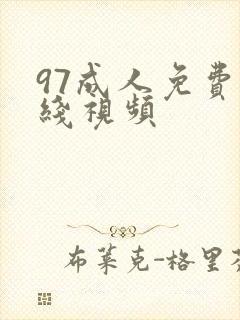 97成人免費
綫視頻
布萊克-格里